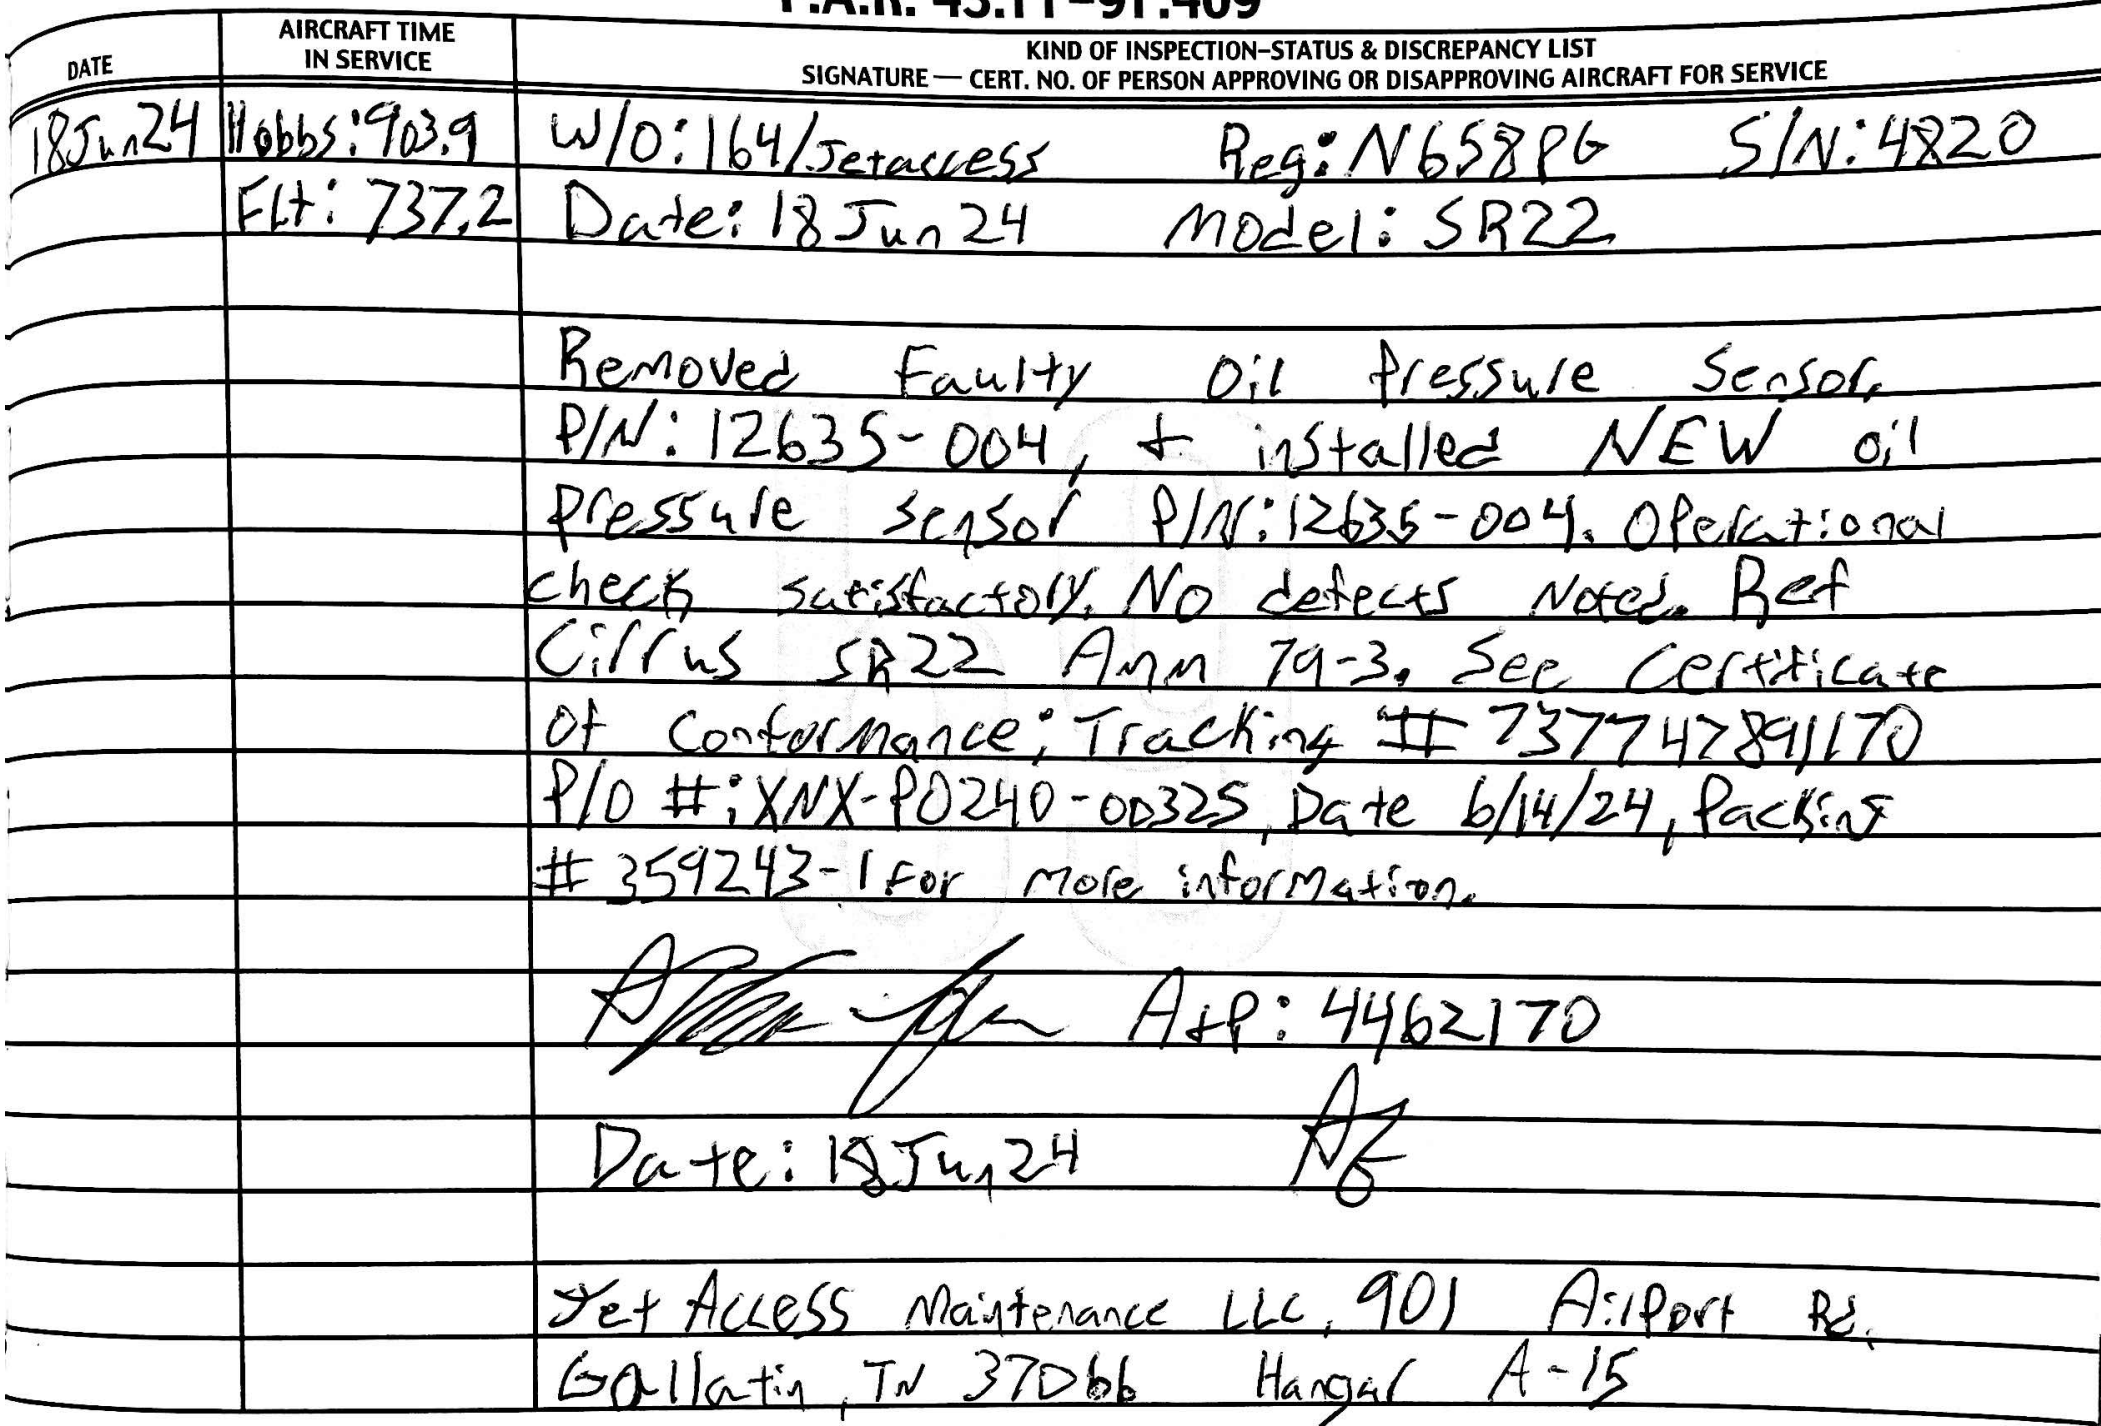 F.A.R. 43.11-91.409
DATE
AIRCRAFT TIME
IN SERVICE
KIND OF INSPECTION–STATUS & DISCREPANCY LIST
SIGNATURE — CERT. NO. OF PERSON APPROVING OR DISAPPROVING AIRCRAFT FOR SERVICE
18Jun24 Hobbs:903.9 W/O:164/Jetaccess Reg: N658PG S/N:4820
Flt: 737.2 Date: 18 Jun 24 Model: SR22
Removed Faulty Oil Pressure Sensor,
P/N: 12635-004, + installed NEW oil
pressure sensor P/N:12635-004. Operational
check satisfactory. No defects Noted. Ref
Cirrus SR22 Amm 79-3. See Certificate
of Conformance; Tracking # 737747891170
P/O #:XNX-PO240-00325, Date 6/14/24, Packing
# 359243-1 For More information.
A+P: 4462170
Date: 18Jun24
Jet Access Maintenance LLC, 901 Airport Rd,
Gallatin, TN 37066 Hangar A-15